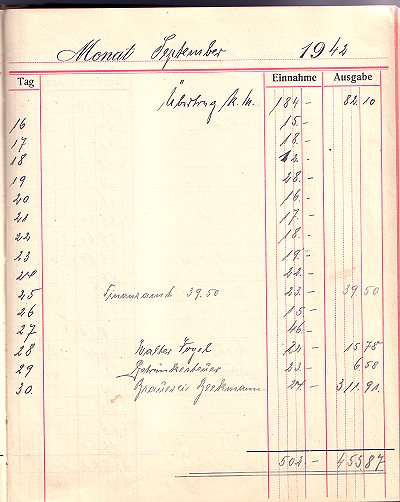 Monat September 1942
Tag Einnahme Ausgabe
Übertrag R.M. 184.- 82.10
16 15.-
17 18.-
18 12.-
19 28.-
20 16.-
21 17.-
22 18.-
23 19.-
24 22.-
25 Finanzamt 39.50 23.- 39 50
26 15.-
27 46.-
28 Walter Vogel 22.- 15 78
29 Getränkesteuer 23.- 6 58
30. Brauerei Beckmann. 24.- 311.91
502.- 455 87